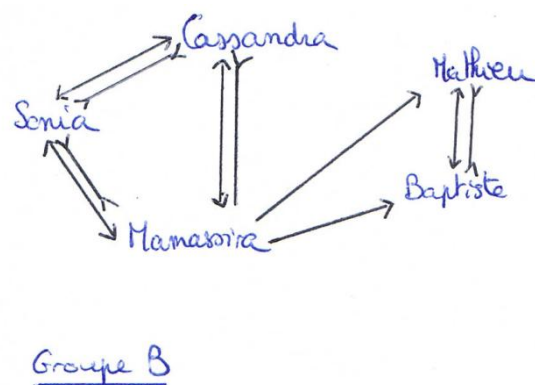 Cassandra
Mathieu
Sonia
Baptiste
Mamassira
Groupe B